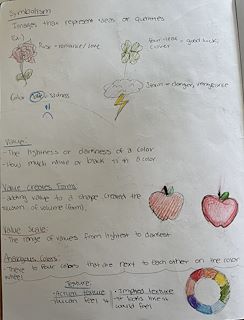 Symbolism
Images that represent ideas or qualities
Ex:)
Rose = romance/love
four-leaf = good luck,
clover
Color blue = sadness
Storm = danger, vengeance
Value
- The lightness or darkness of a color
- How much white or black is in a color
Value Creates Form:
- adding value to a shape created the
illusion of volume (form).
Value Scale:
- The range of values from lightest to darkest
Analogous Colors:
- Three to four colors that are next to each other on the color
wheel
Texture:
- Actual texture
You can feel it
- Implied texture
it looks like it
would feel